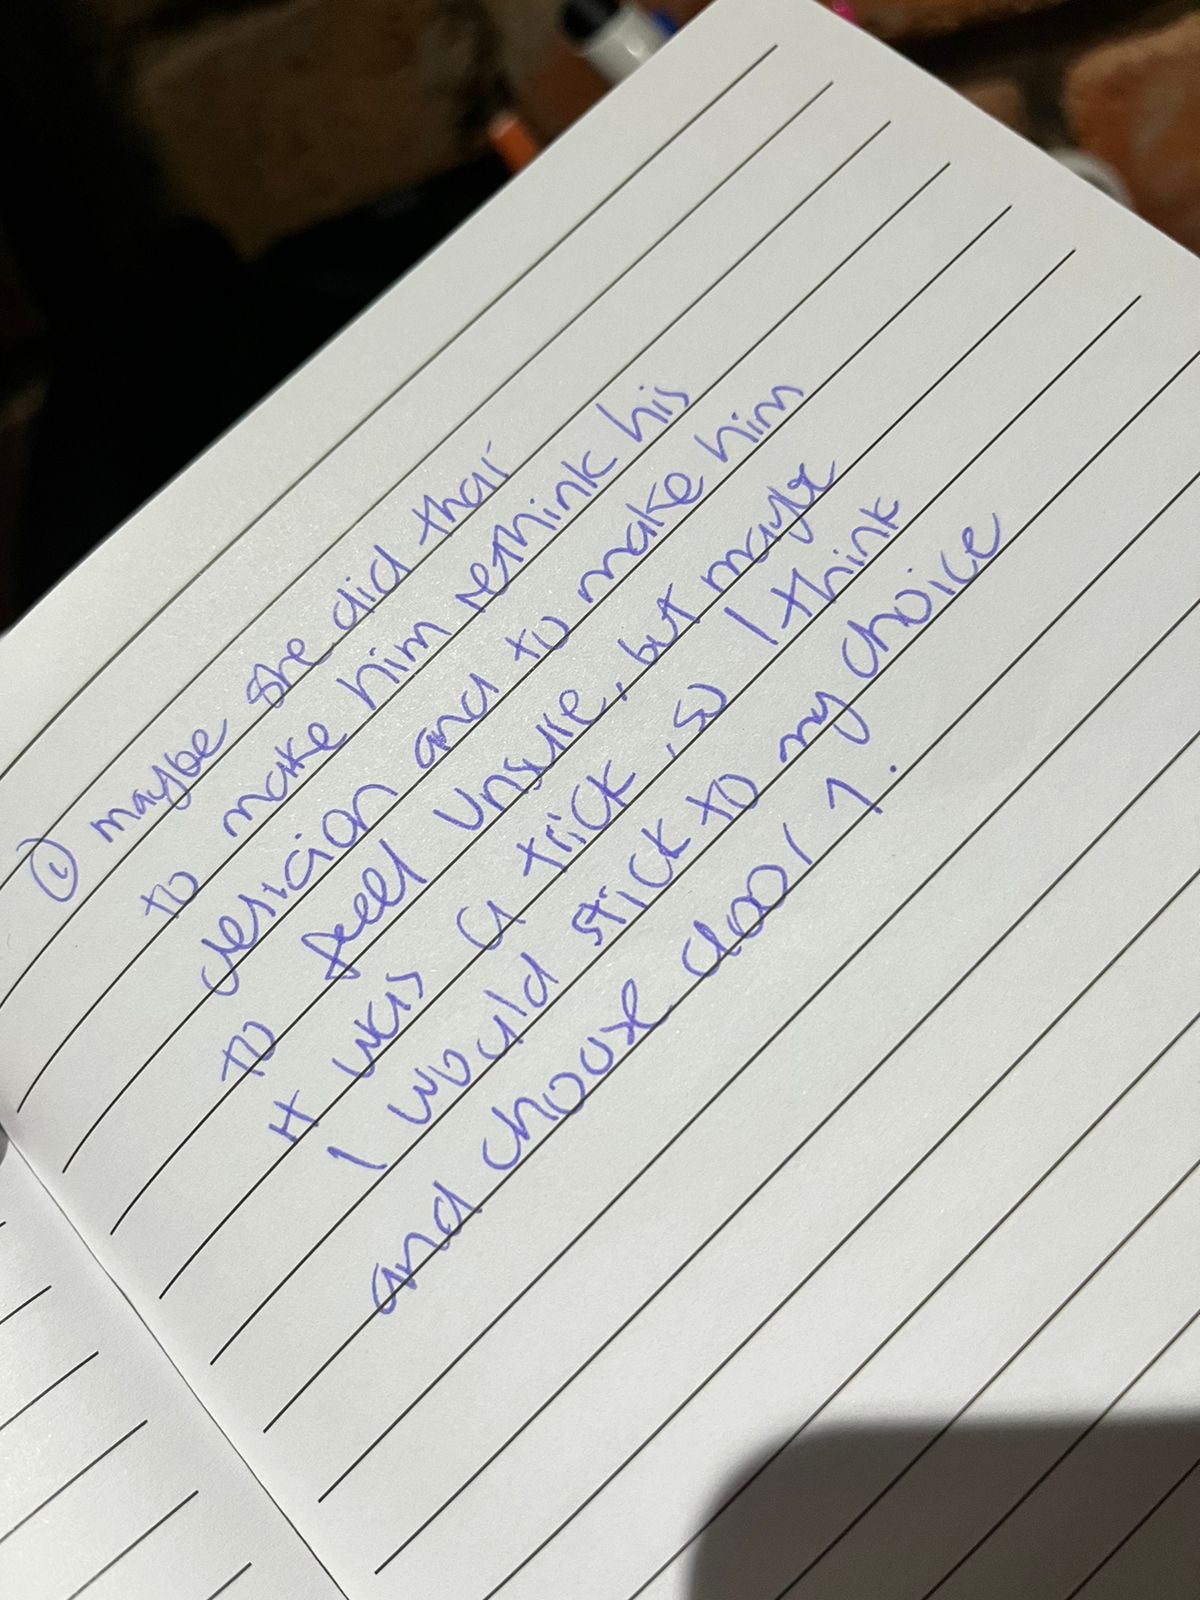 ① maybe she did that
to make him rethink his
desicion and to make him
to feel unsure, but maybe
it was a trick, so I think
I would stick to my choice
and choose door 1.